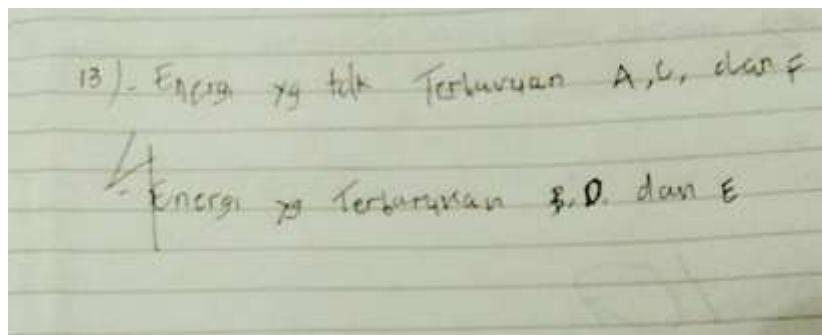 13). Energi yg tdk Terbaruan A, C, dan F
4
- Energi yg Terbarukan B. D. dan E